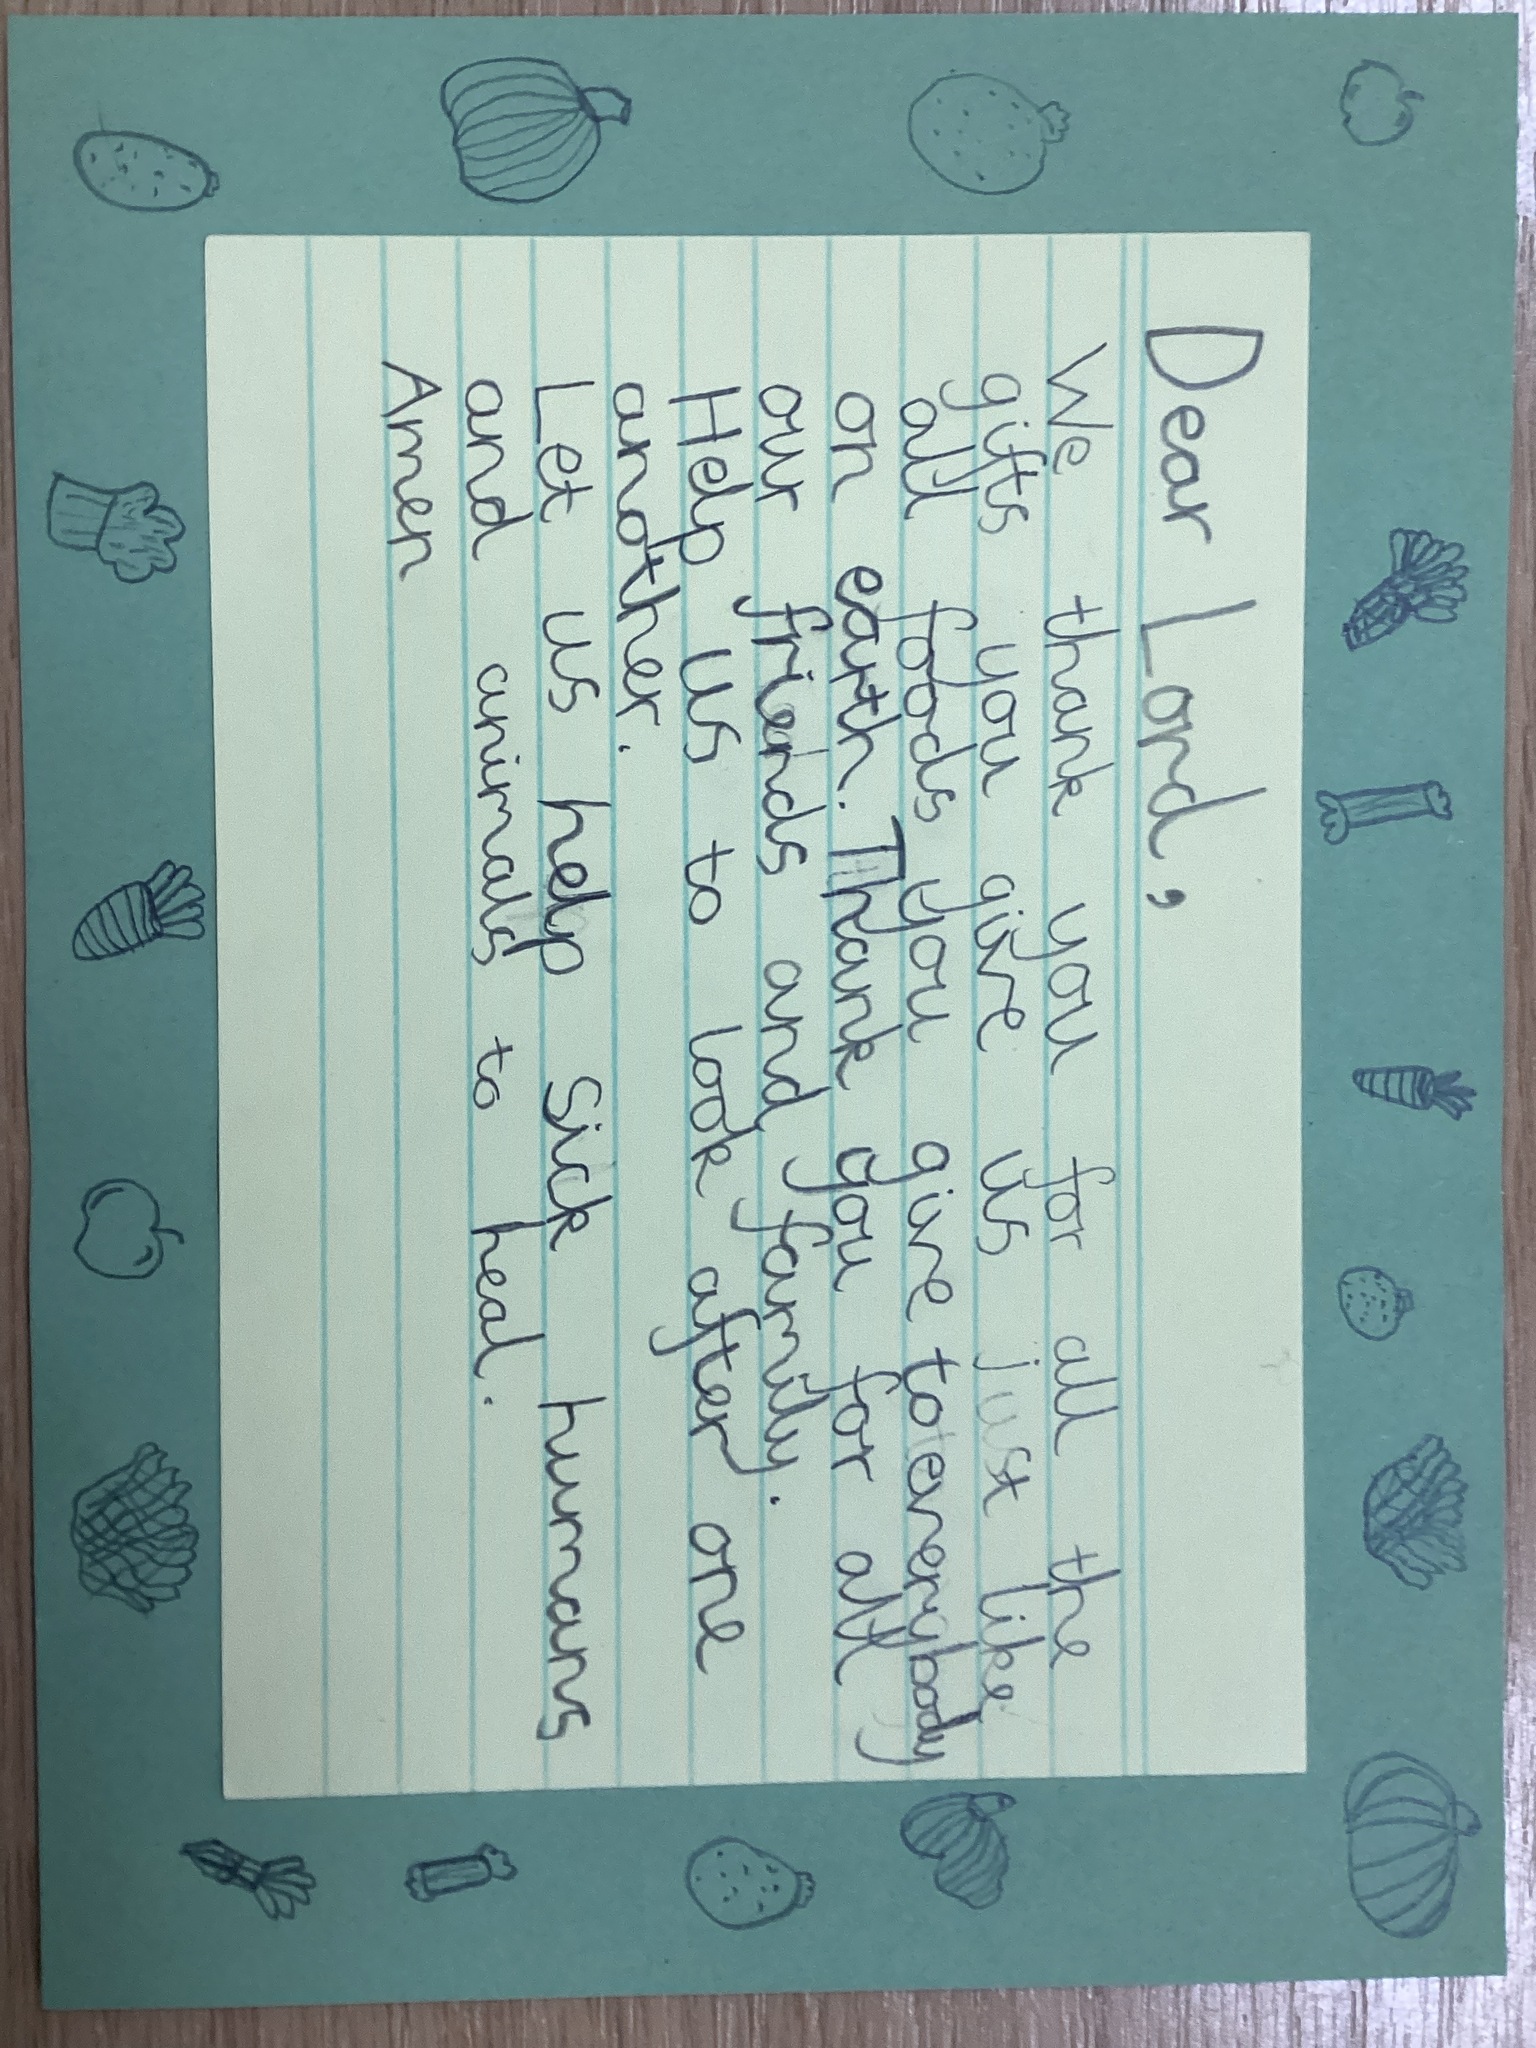 Dear Lord,
We thank you for all the
gifts you give us just like
all foods you give to everybody
on earth. Thank you for all
our friends and family.
Help us to look after one
another.
Let us help Sick humans
and animals to heal.
Amen